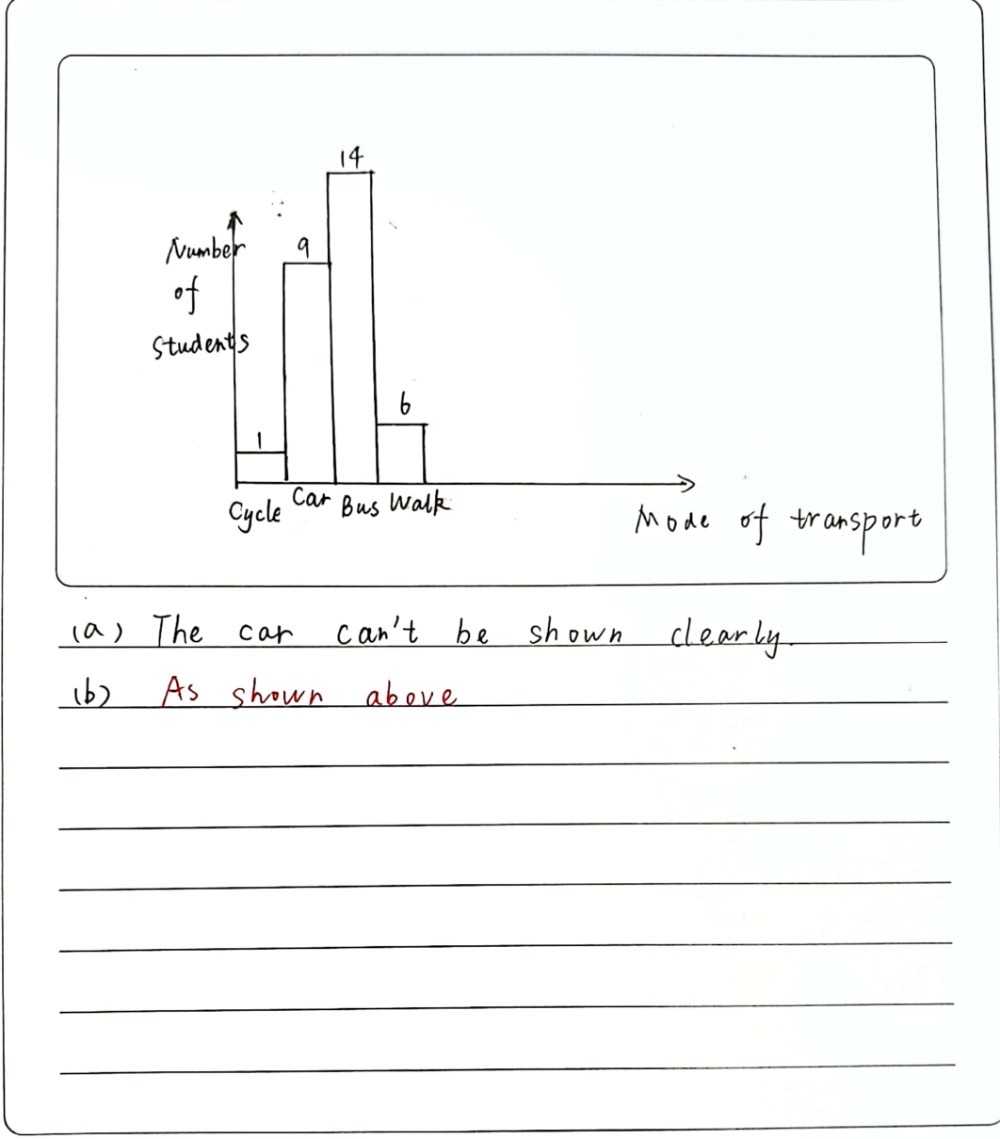 14
9
Number
of
Students
6
1
Cycle Car Bus Walk
Mode of transport
(a) The car can't be shown clearly.
(b) As shown above